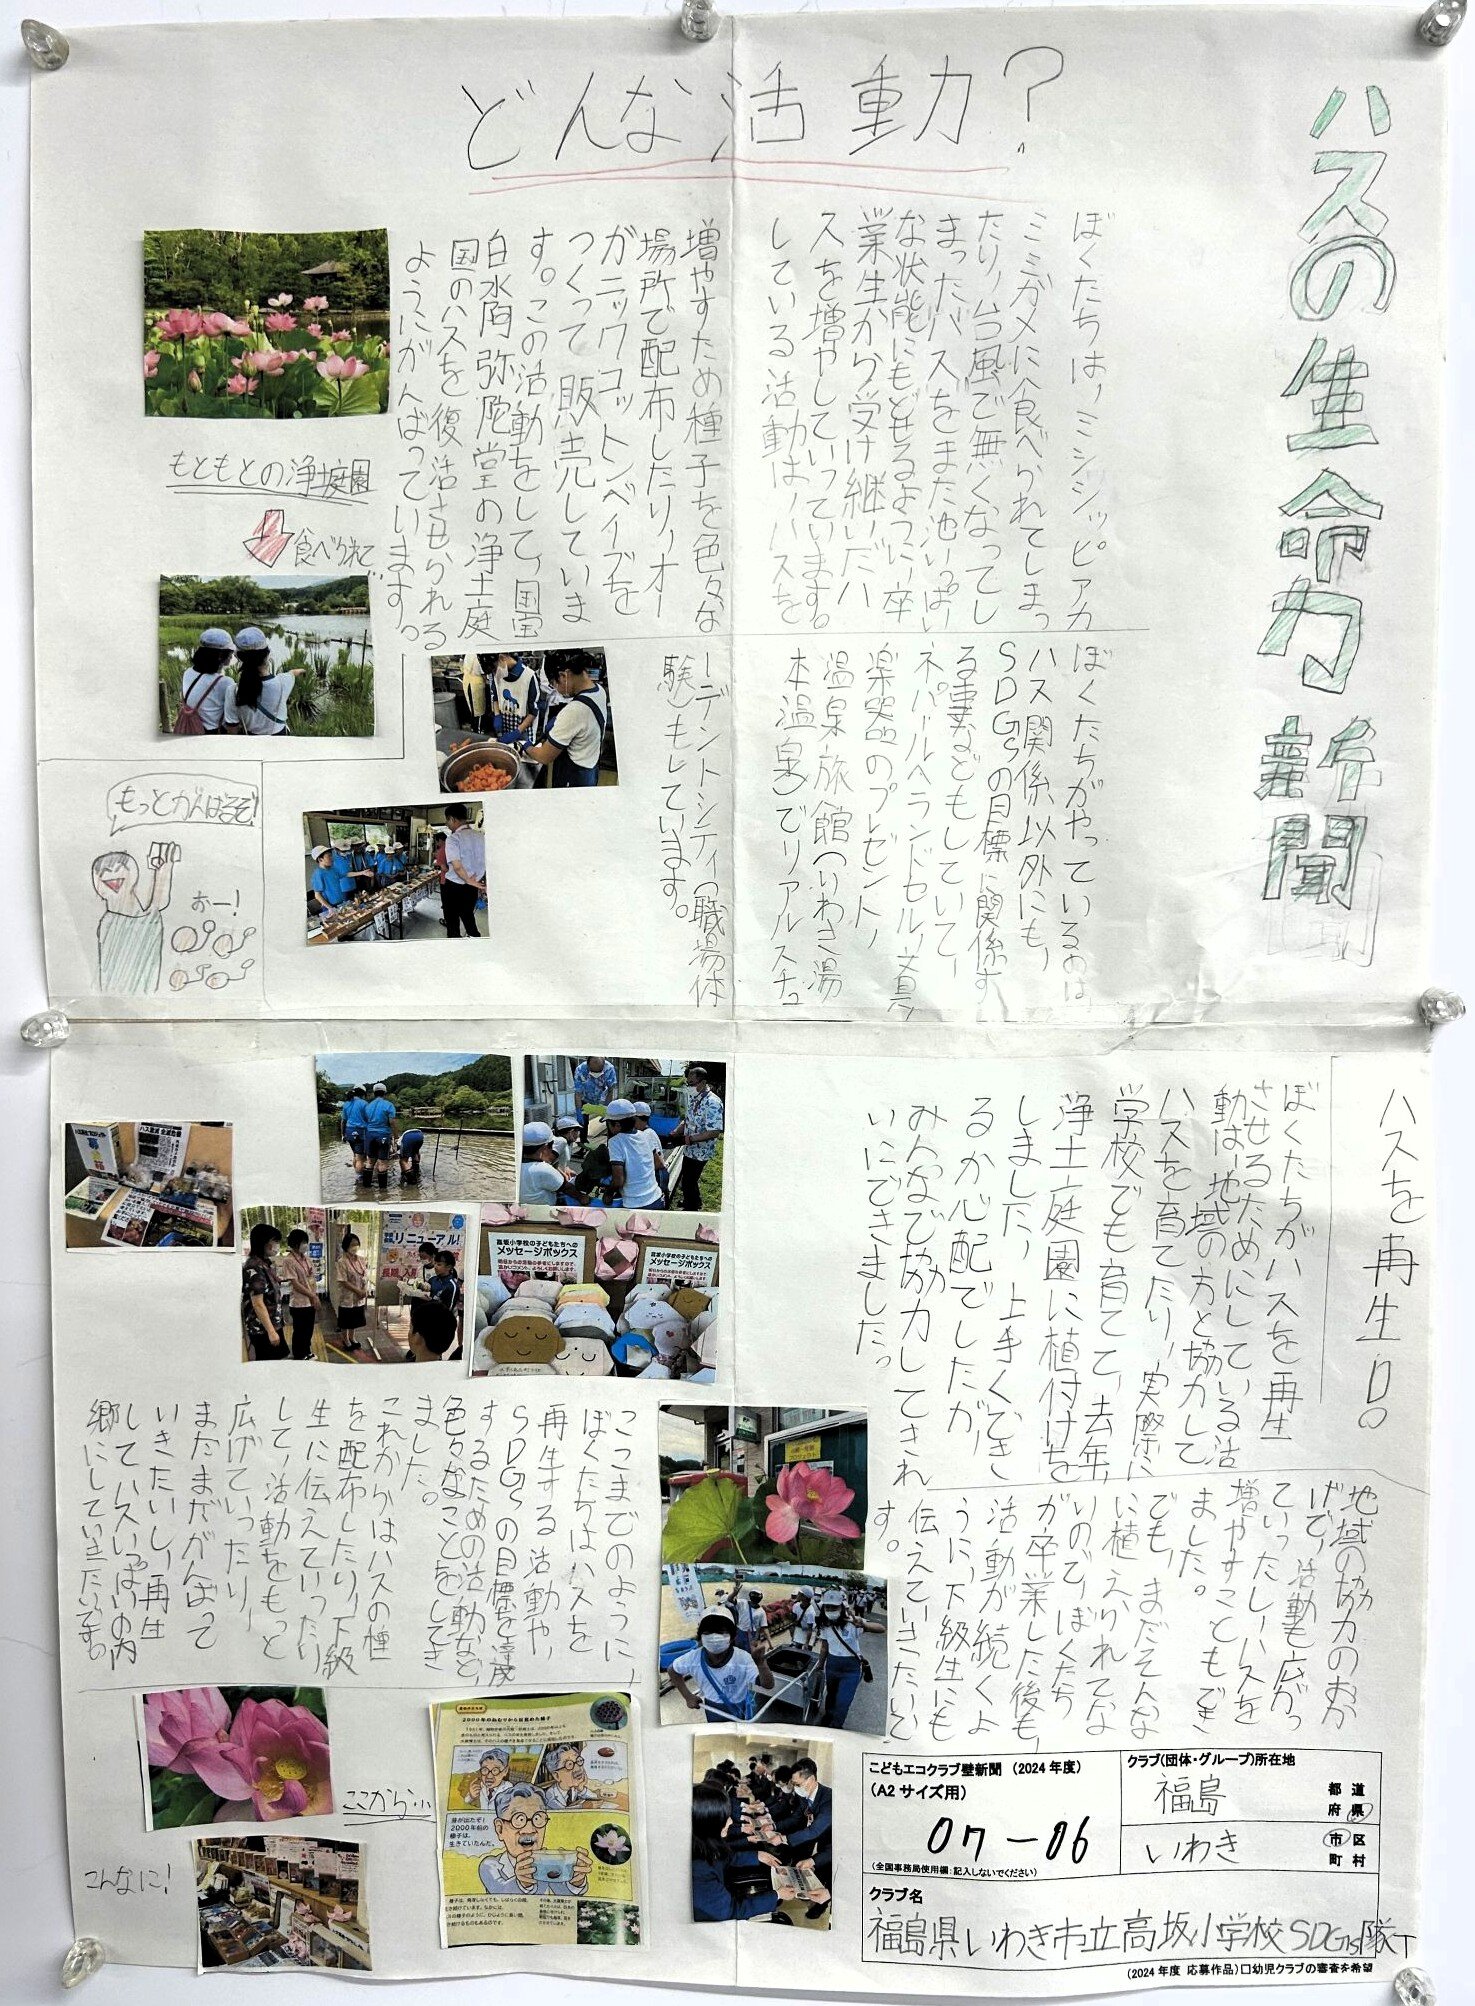 ハスの生命力新聞
どんな活動?
ぼくたちは、ミシシッピアカ
ミミガメに食べられてしまっ
たり、台風で無くなってし
まったハスをまた池いっぱい
な状態にもどせるように、卒
業生から受け継いだハ
スを増やしていっています。
している活動は、ハスを
増やすため種子を色々な
場所で配布したり、オー
ガニックコットンベイブを
つくって販売していま
す。この活動をして、国宝
白水阿弥陀堂の浄土庭
国のハスを復活させられる
ようにがんばっています。
もともとの浄庭園
食べられて…
ぼくたちがやっているのは、
ハス関係以外にも、
SDGsの目標に関係す
る事などもしていて、
ネパールへランドセル、文具、
楽器のプレゼント、
温泉旅館(いわき湯
本温泉)でリアルスチュ
ーデントシティ(職場体
験)もしています。
もっとがんばるぞ!
おー!
ハスを再生!!。
ぼくたちがハスを再生
させるためにしている活
動は、地域の方と協力して
ハスを育てたり、実際に
学校でも育てて、去年、
浄土庭園に植付けを
しました。上手くでき
るか心配でしたが、
みんなで協力してきれ
いにできました。
リニューアル!
高坂小学校の子どもたちへの
メッセージボックス
高坂小学校の子どもたちへの
メッセージボックス
地域の協力のおか
げで、活動も広がっ
ていったし、ハスを
増やすこともでき
ました。
でも、まだそんな
に植えられてな
いので、ぼくたち
が卒業した後も、
活動が続くよ
うに、下級生にも
伝えていきたいで
す。
ここまでのように、
ぼくたちはハスを
再生する活動や、
SDGsの目標を達成
するための活動など、
色々なことをしてき
ました。
これからはハスの種
を配布したり、下級
生に伝えていったり
して、活動をもっと
広げていったり、
まだまだがんばって
いきたいし、再生
してハスいっぱいの内
郷にしていきたいです。
ここから
こんなに!
2000年のねむりから目覚めた種子
芽が出たぞ!
2000年前の
種子は、
生きていたんだ。
こどもエコクラブ壁新聞 (2024年度)
(A2サイズ用)
07-06
(全国事務局使用欄:記入しないでください)
クラブ(団体・グループ)所在地
福島 都道府県
いわき 市区町村
クラブ名
福島県いわき市立高坂小学校SDGs隊T
(2024年度 応募作品)□幼児クラブの審査を希望